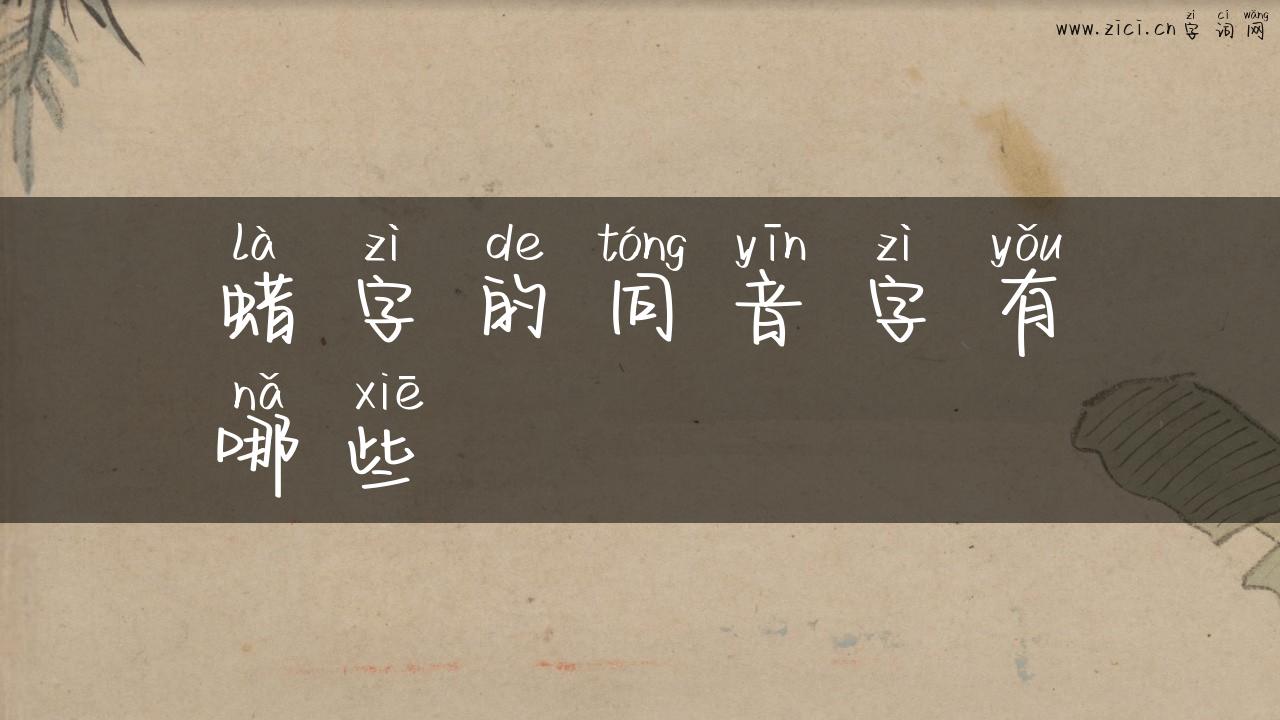 zì cí wǎng
www.zici.cn 字词网
là zì de tóng yīn zì yǒu
蜡字的同音字有
nǎ xiē
哪些